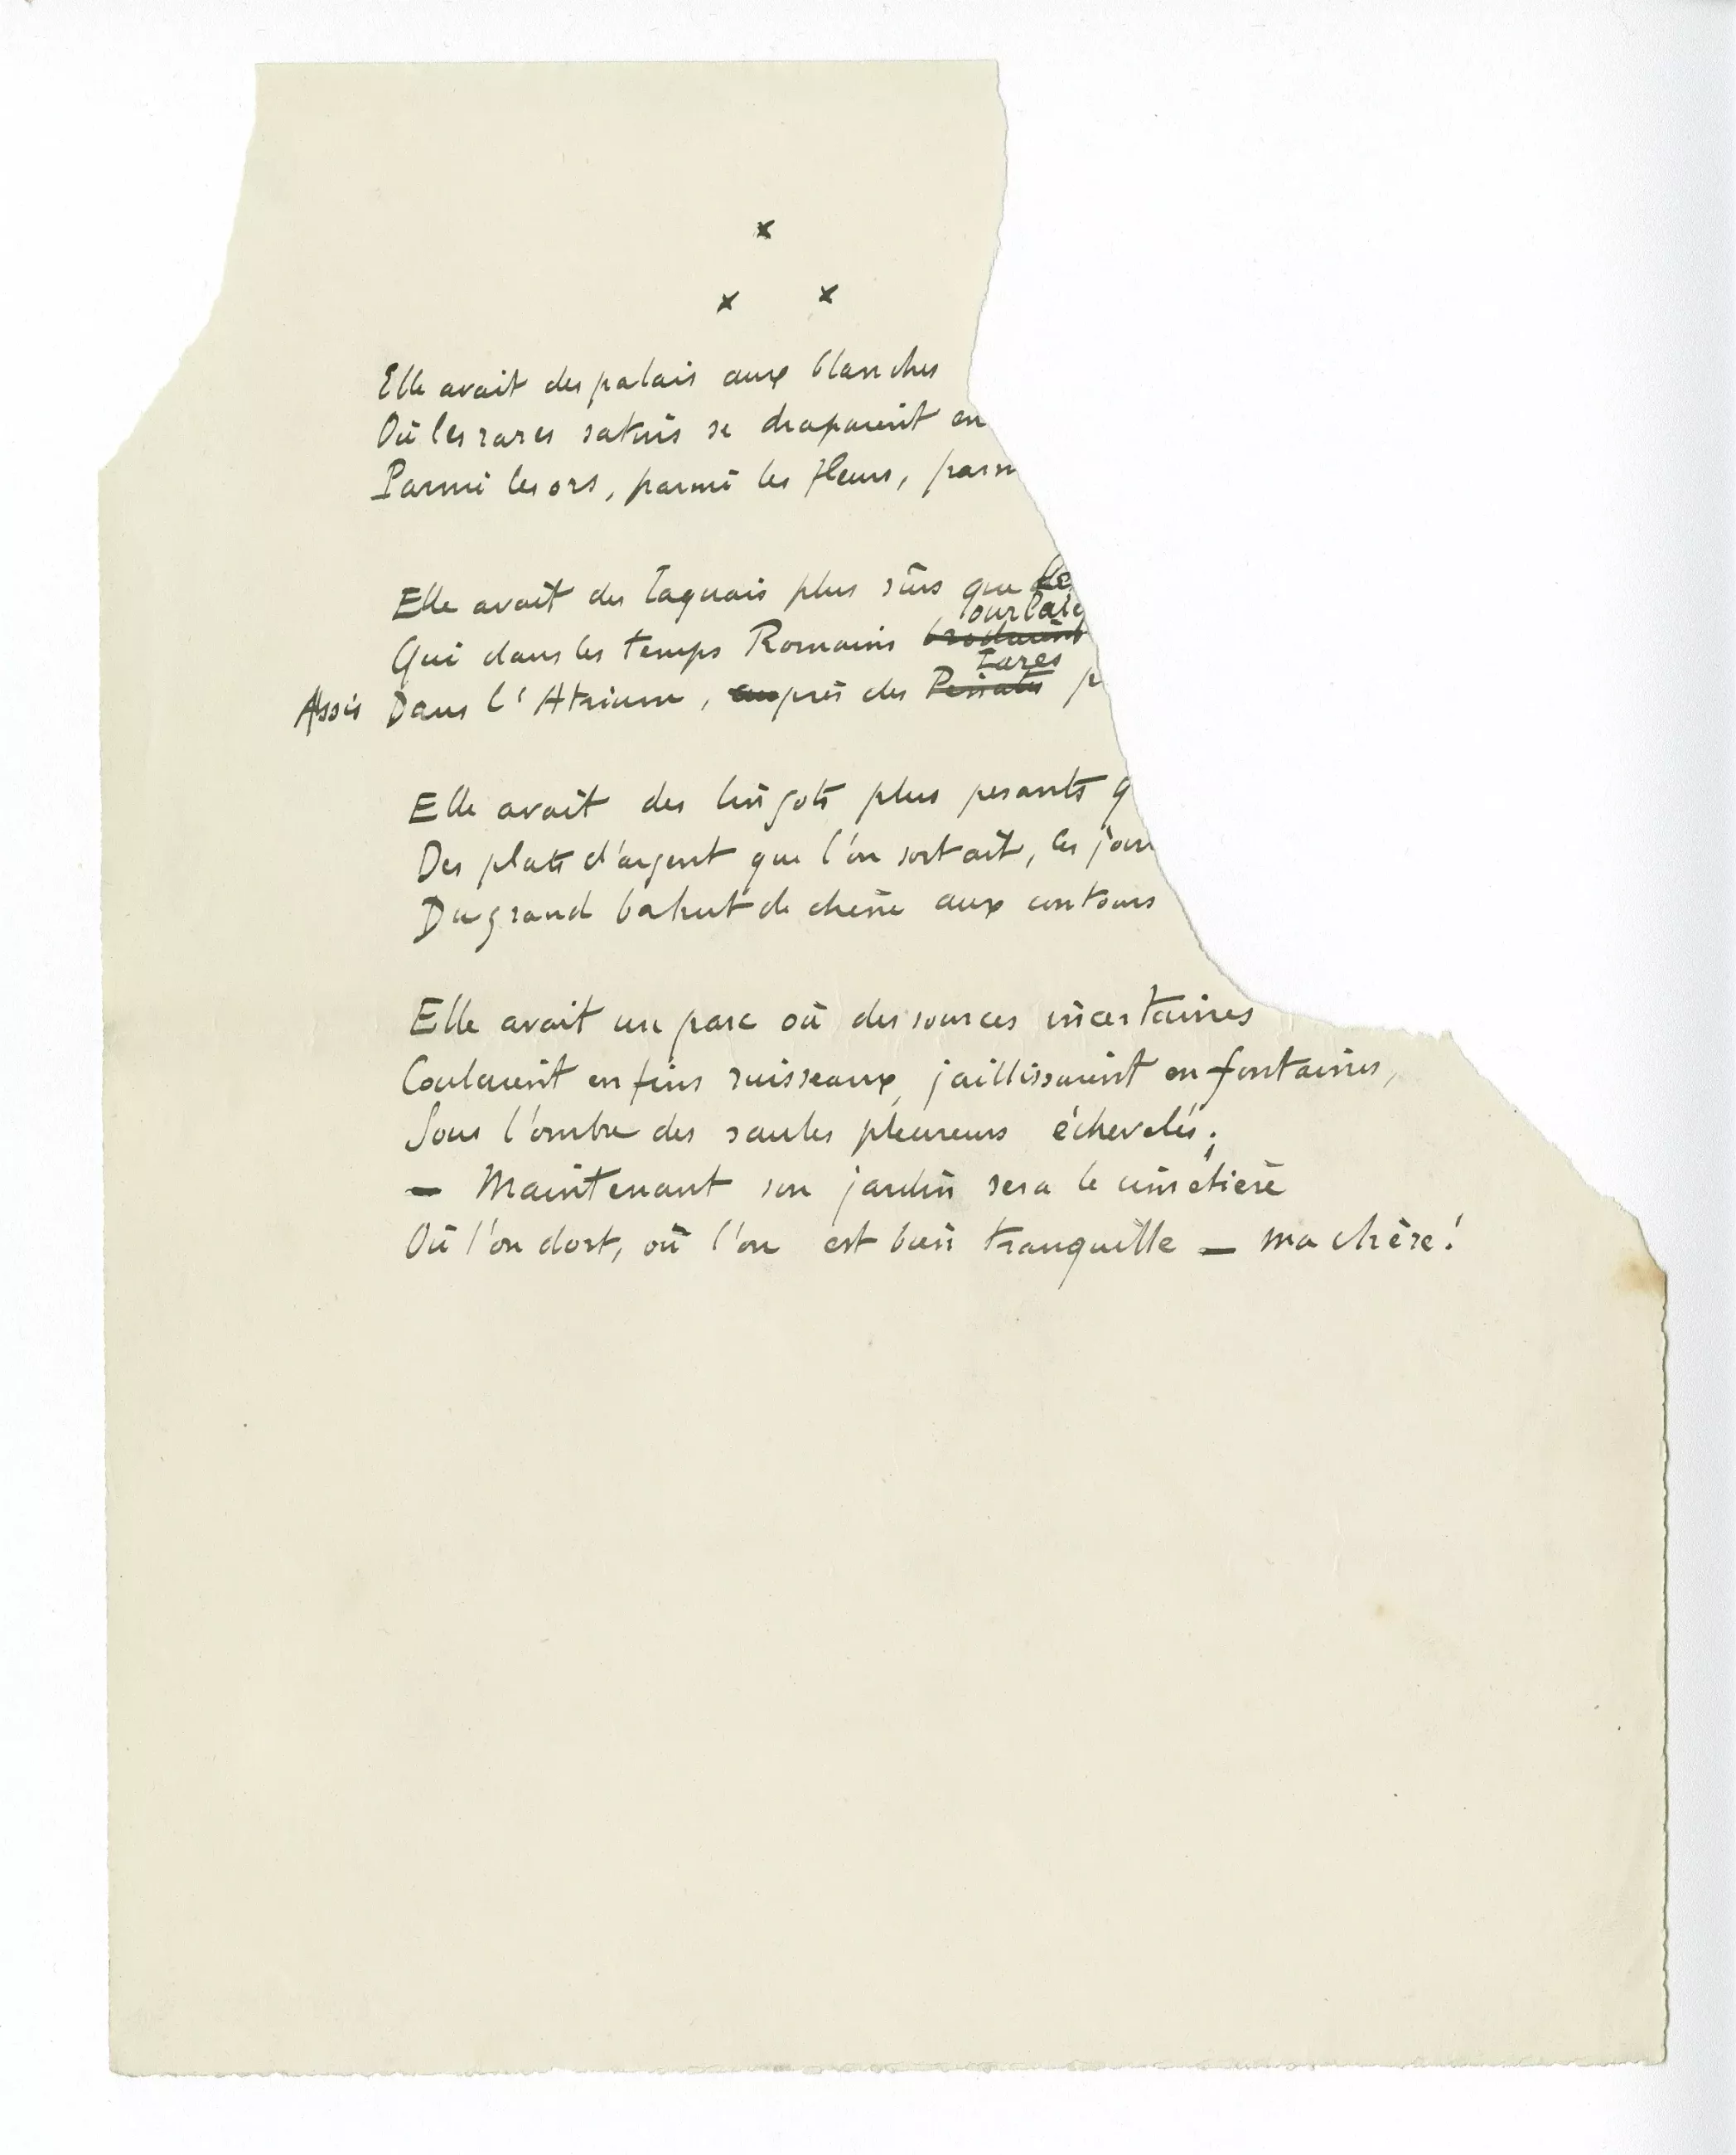 x
x x
Elle avait des palais aux blanches
Où les rares satins se drapaient en
Parmi les ors, parmi les fleurs, parm
Elle avait des laquais plus sûrs que
ourlai
Qui dans les temps Romains brodaient
Lares
Assis Dans l'Atrium, auprès des Pénates p
Elle avait des lingots plus pesants q
Des plats d'argent que l'on sortait, les jou
Du grand bahut de chêne aux contours
Elle avait un parc où des sources incertaines
Coulaient en fins ruisseaux, jaillissaient en fontaines,
Sous l'ombre des saules pleureurs échevelés;
— Maintenant son jardin sera le cimetière
Où l'on dort, où l'on est bien tranquille — ma chère!